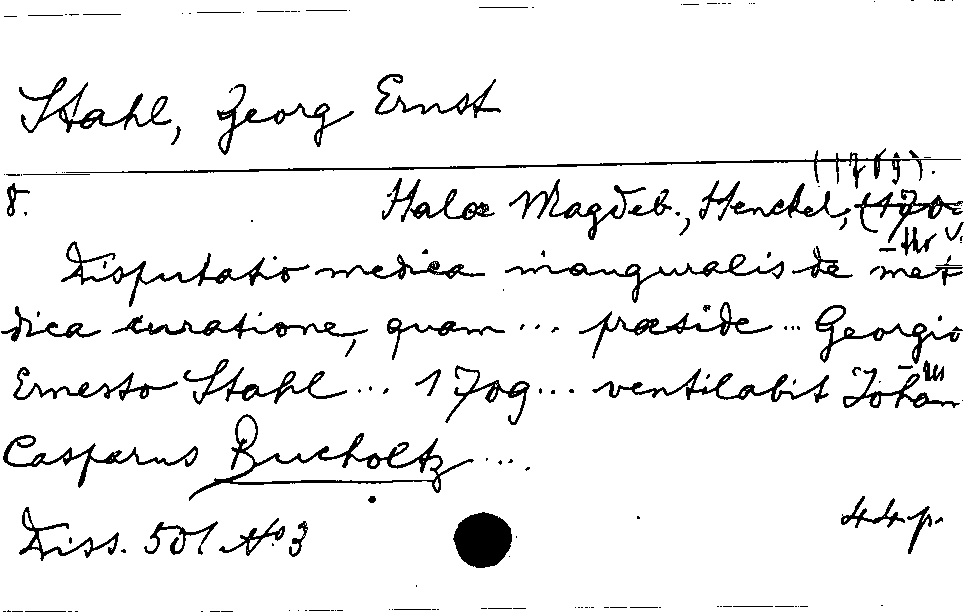 Stahl, Georg Ernst
(1709).
8. Halæ Magdeb., Henckel,
Disputatio medica inauguralis de me-
dica curatione, quam ... præside ... Georgio
Ernesto Stahl ... 1709 ... ventilabit Johan
Casparus Bucholtz ....
44 p.
Diss. 501 No 3